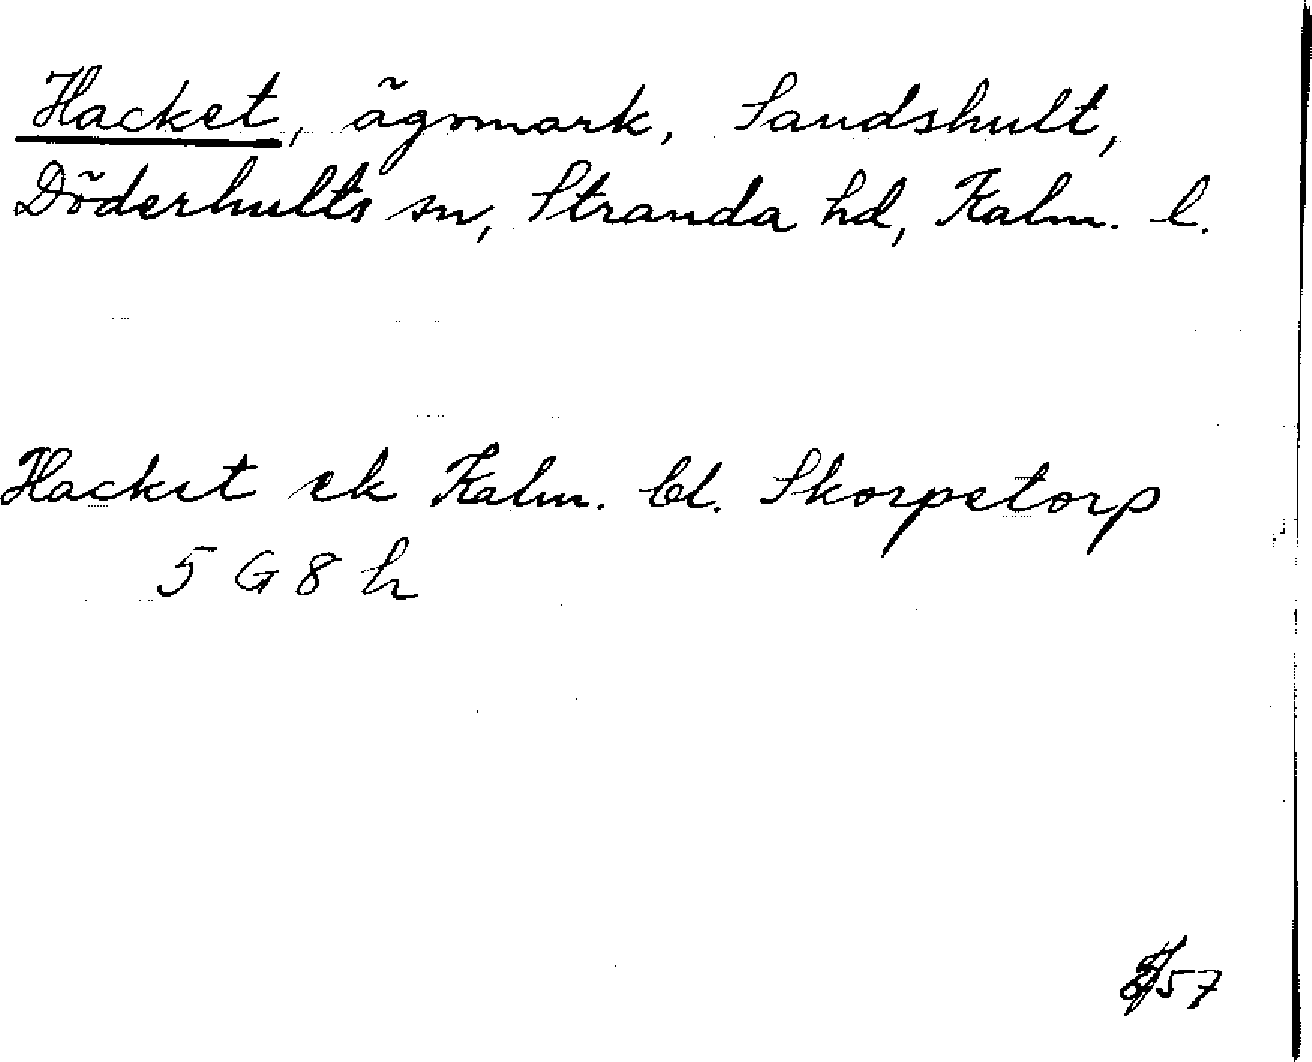 Hacket, ägomark, Sandshult,
Döderhults sn, Stranda hd, Kalm. l.
Hacket ek Kalm. bl. Skorpetorp
5 G 8 h
57